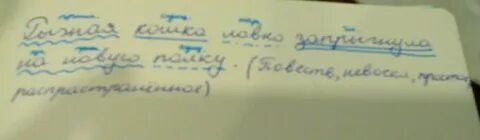 Рыжая кошка ловко запрыгнула
на новую полку. (Повеств, невоскл, простое,
распространённое)